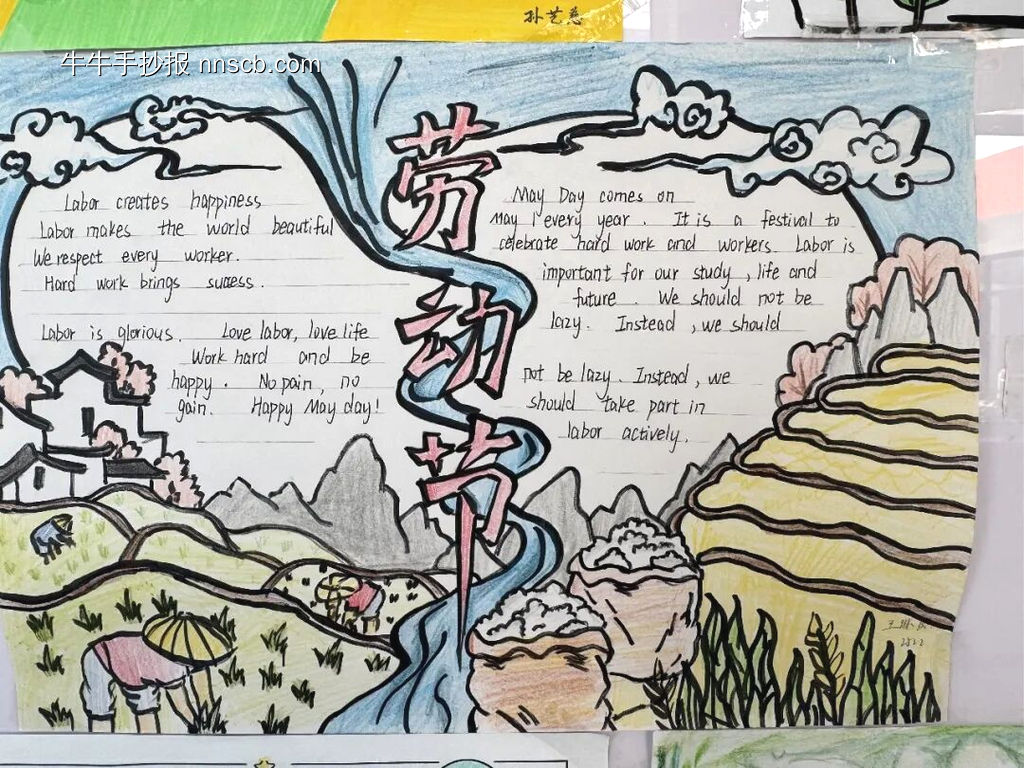 孙艺慈
牛牛手抄报 nnscb.com
劳动节
Labor creates happiness
Labor makes the world beautiful
We respect every worker.
Hard work brings success.
Labor is glorious. Love labor, love life
Work hard and be
happy. No pain, no
gain. Happy May day!
May Day comes on
May 1 every year. It is a festival to
celebrate hard work and workers Labor is
important for our study, life and
future. We should not be
lazy. Instead, we should
not be lazy. Instead, we
should take part in
labor actively.